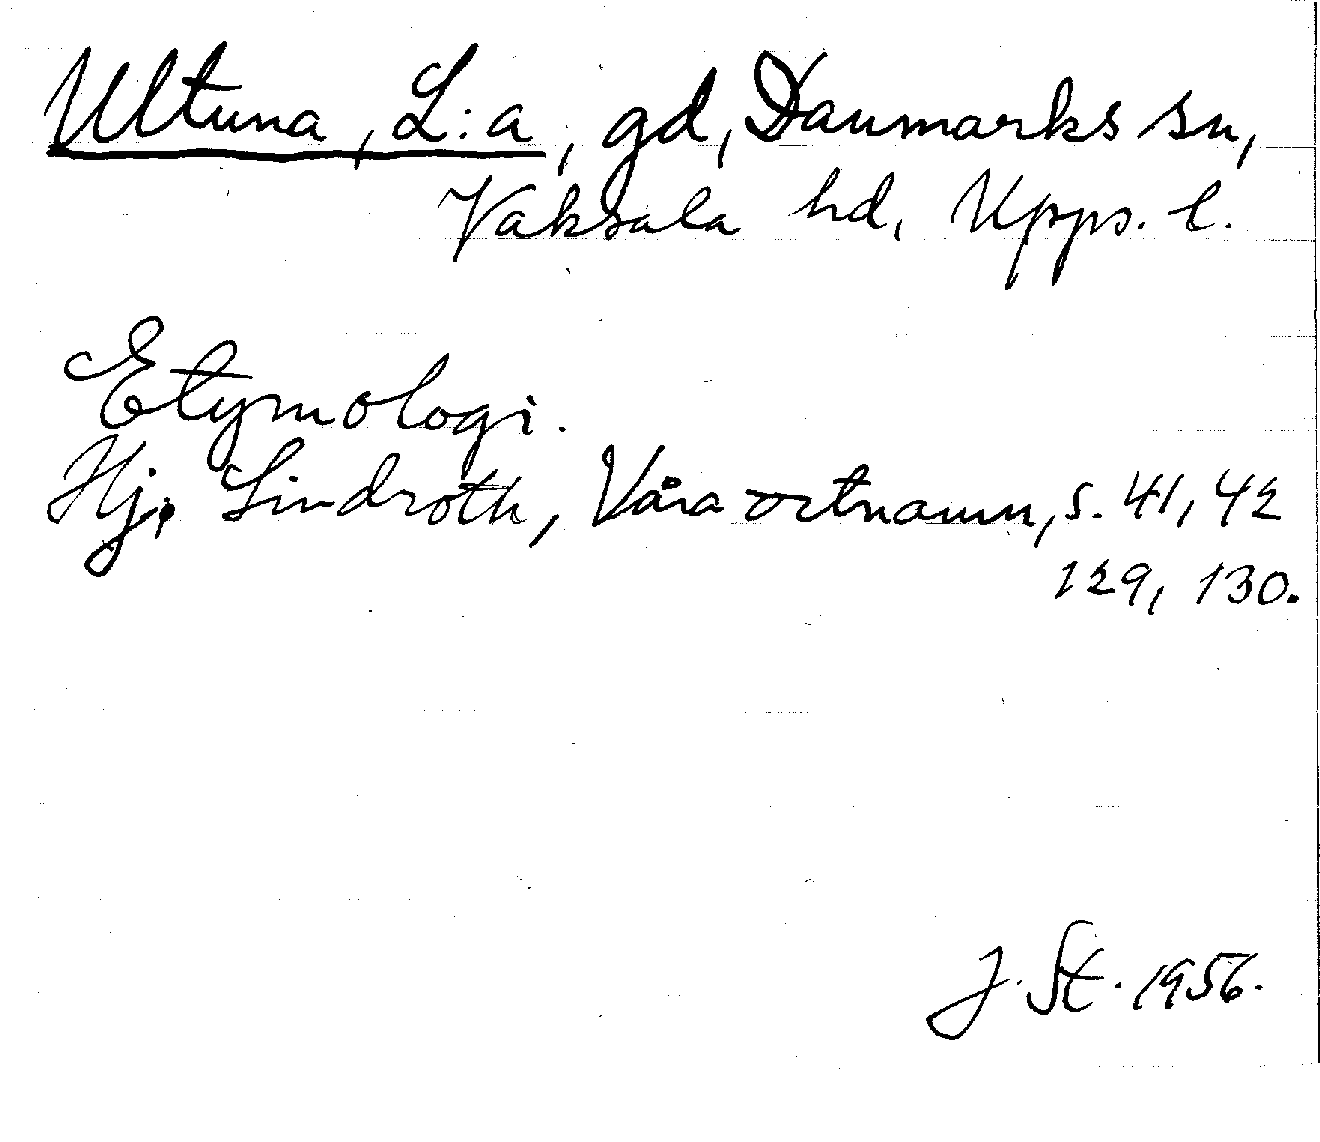 Ultuna, L:a, gd, Danmarks sn,
Vaksala hd, Upps. l.
Etymologi.
Hj. Lindroth, Våra ortnamn, s. 41, 42
129, 130.
J. St. 1956.